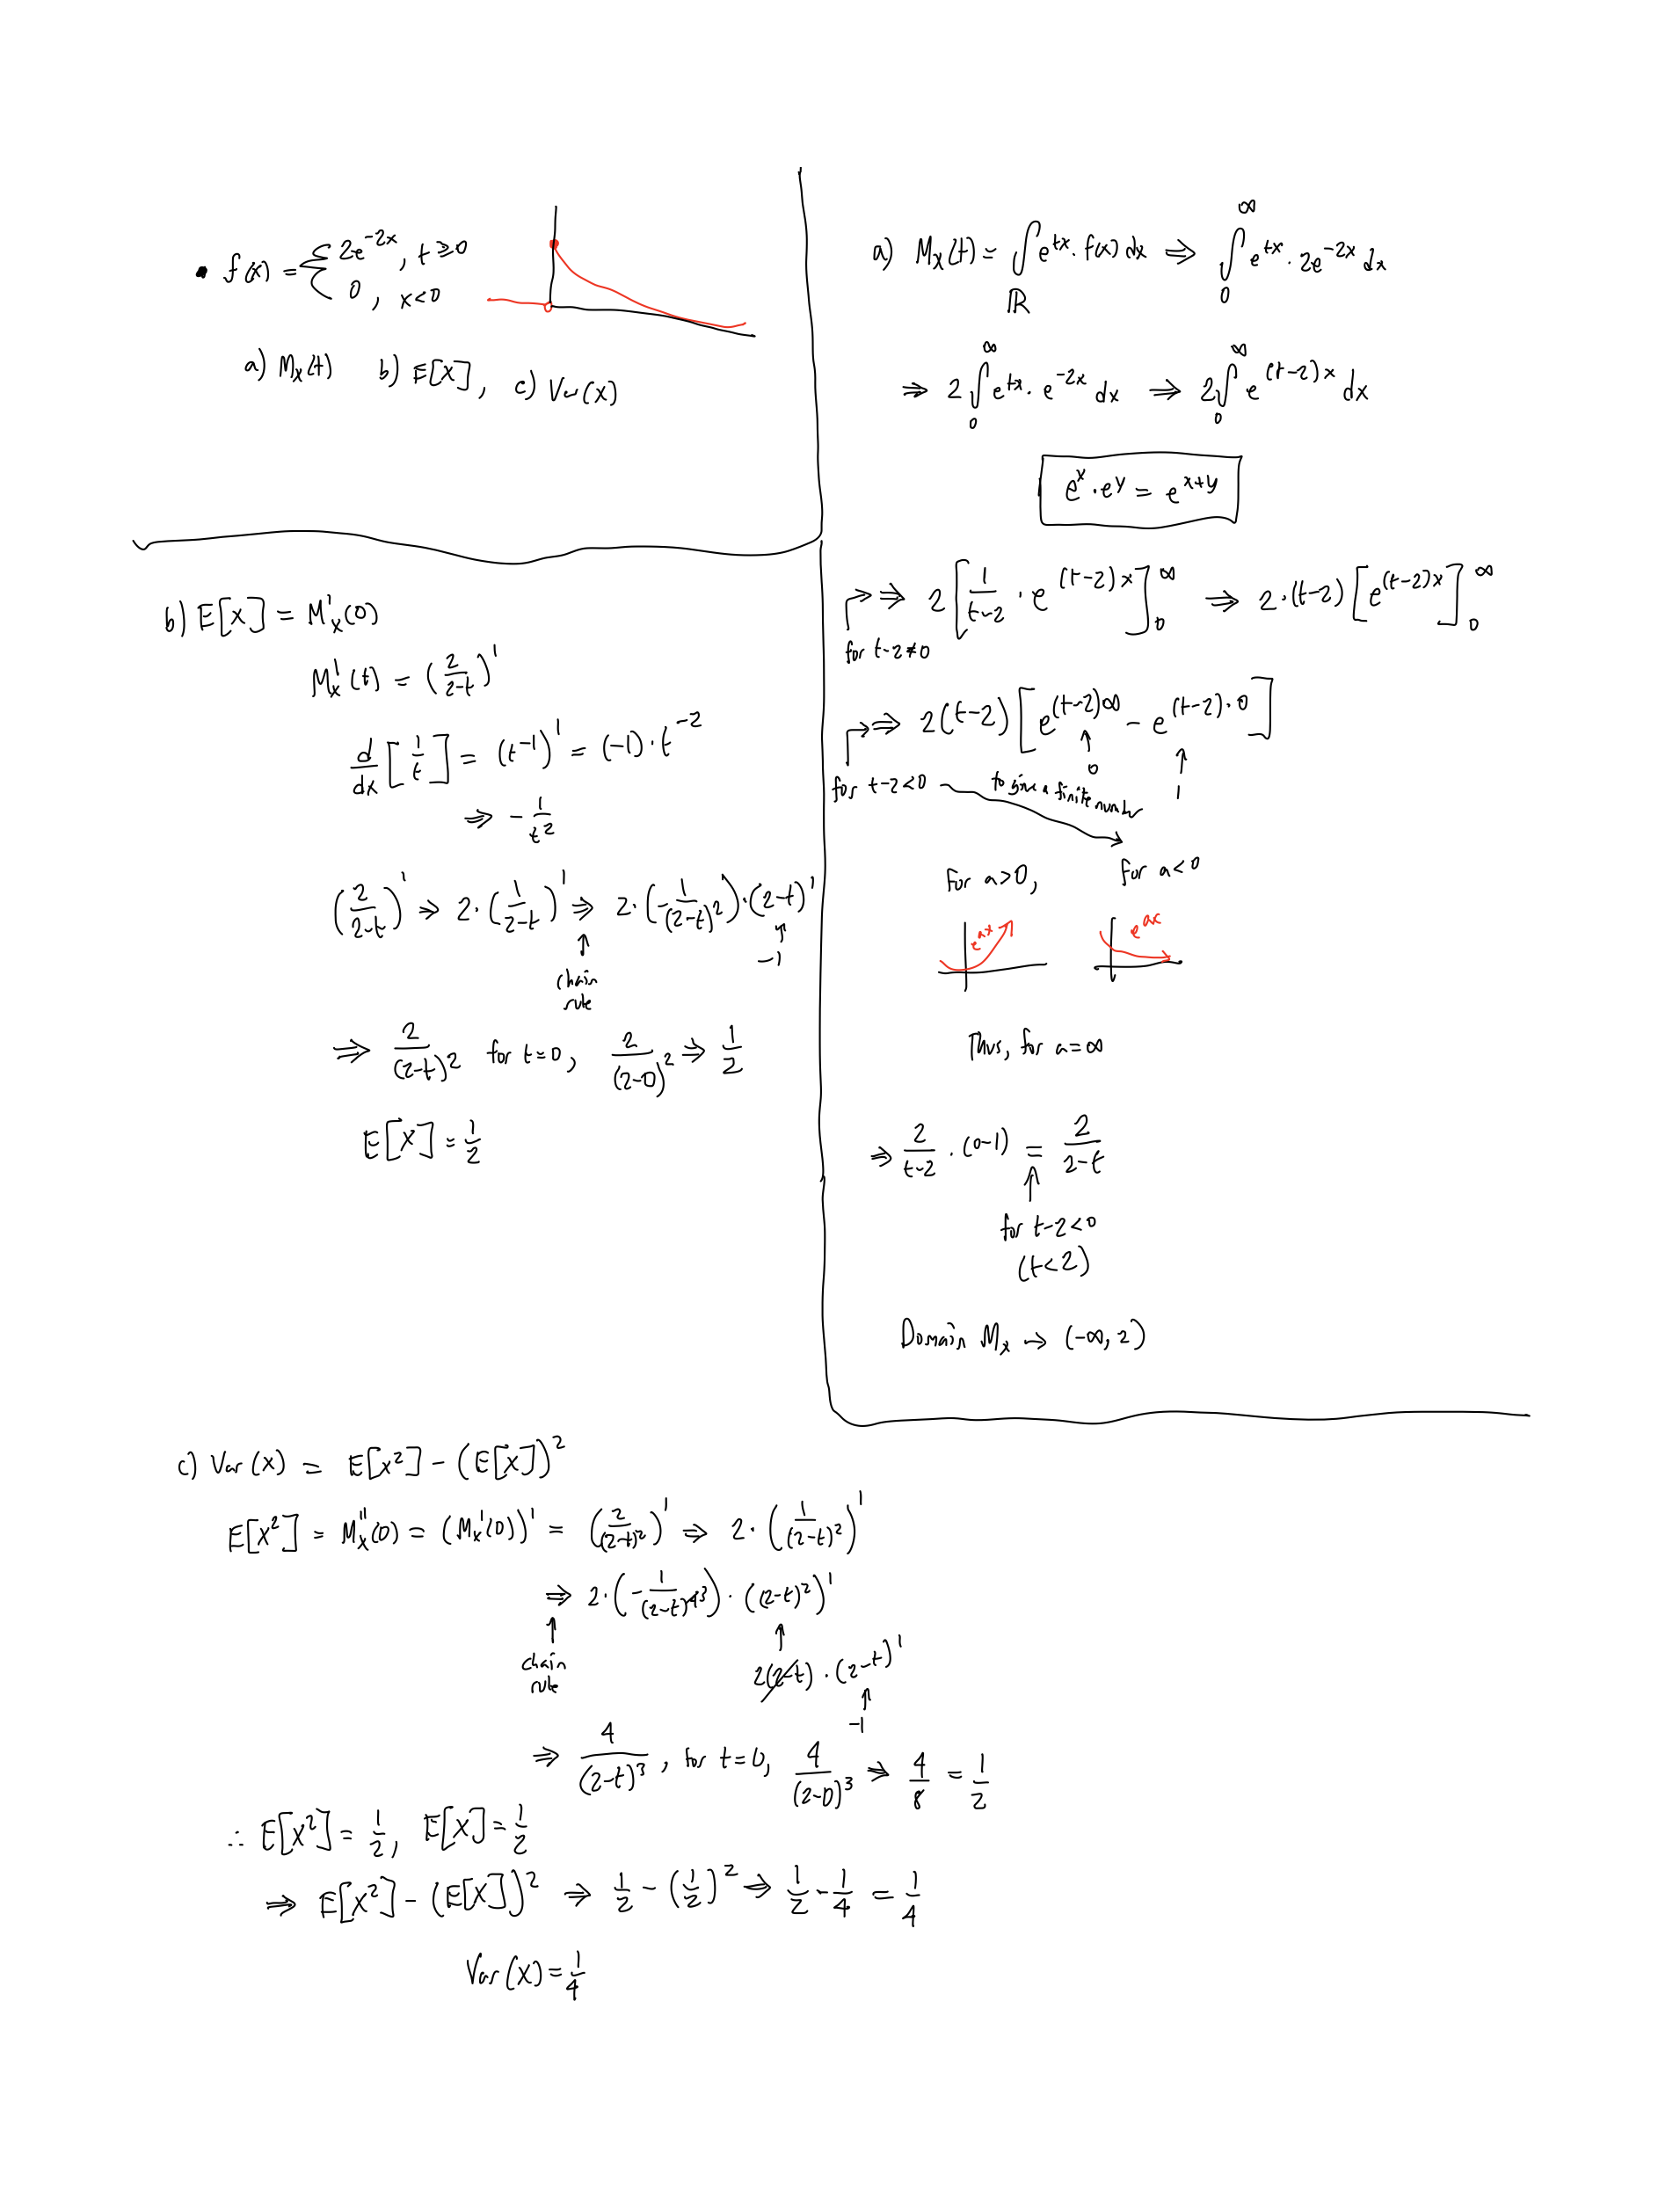 • f(x) = { 2e^{-2x}, t ≥ 0
0, x < 0
a) M_X(t) b) E[X], c) Var(X)
a) M_X(t) = ∫_ℝ e^{tx} · f(x) dx ⇒ ∫_0^∞ e^{tx} · 2e^{-2x} dx
⇒ 2∫_0^∞ e^{tx} · e^{-2x} dx ⇒ 2∫_0^∞ e^{(t-2)x} dx
e^x · e^y = e^{x+y}
⇒ 2[1/(t-2) · e^{(t-2)x}]_0^∞ ⇒ 2·(t-2)[e^{(t-2)x}]_0^∞
for t-2≠0
⇒ 2(t-2)[e^{(t-2)∞} - e^{(t-2)·0}]
↑ 0 ↑ 1
for t-2<0 to give a finite number
for a>0, for a<0
e^{ax} e^{ax}
Thus, for a=∞
⇒ 2/(t-2) · (0-1) = 2/(2-t)
↑
for t-2<0
(t<2)
Domain M_X → (-∞, 2)
b) E[X] = M'_X(0)
M'_X(t) = (2/(2-t))'
d/dx [1/t] = (t^{-1})' = (-1)·t^{-2}
⇒ -1/t^2
(2/(2-t))' ⇒ 2·(1/(2-t))' ⇒ 2·(-1/(2-t)^2)·(2-t)'
↑ ↑
chain -1
rule
⇒ 2/(2-t)^2 for t=0, 2/(2-0)^2 ⇒ 1/2
E[X] = 1/2
c) Var(X) = E[X^2] - (E[X])^2
E[X^2] = M''_X(0) = (M'_X(0))' = (2/(2-t)^2)' ⇒ 2·(1/(2-t)^2)'
⇒ 2·(-1/(2-t)^{43})·((2-t)^2)'
↑ ↑
chain 2(2-t)·(2-t)'
rule ↑
-1
⇒ 4/(2-t)^3, for t=0, 4/(2-0)^3 ⇒ 4/8 = 1/2
∴ E[X^2] = 1/2, E[X] = 1/2
⇒ E[X^2] - (E[X])^2 ⇒ 1/2 - (1/2)^2 ⇒ 1/2 - 1/4 = 1/4
Var(X) = 1/4